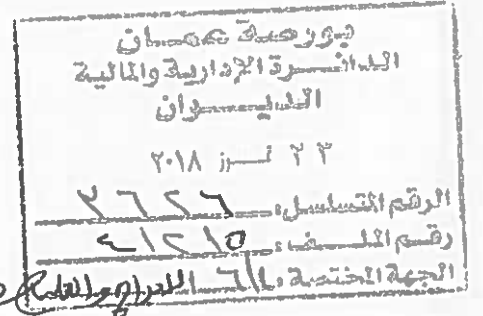 بورصة عمان
الدائرة الإدارية والمالية
الديوان
٢٣ تموز ٢٠١٨
الرقم المتسلسل: ٣٦٢٦
رقم الملف: ٤١٢١٥
الجهة المختصة: